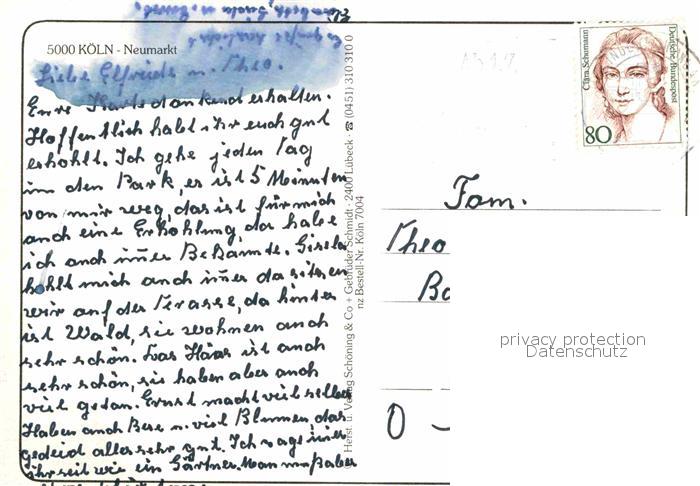 5000 KÖLN - Neumarkt
Liebe Elfriede u. Theo.
Eure Karte dankend erhalten.
Hoffentlich habt ihr euch gut
erhohlt. Ich gehe jeden Tag
in den Park, es ist 5 Minuten
von mir weg, das ist für mich
auch eine Erhohlung, da habe
ich auch imer Bekannte. Gisela
hohlt mich auch imer da sitzen
wir auf der Terasse, da hinter
ist Wald, sie wohnen auch
sehr schön. Das Haas ist auch
sehr schön, sie haben aber auch
viel getan. Ernst macht viel selber
Haben auch Bere u. viel Blumen, das
gedeid alles sehr gut. Ich sage imer
ihr seit wie ein Gärtner. Man muß aber
Herst. u. Verlag Schöning & Co + Gebrüder Schmidt · 2400 Lübeck ☎ (0451) 310 310 0
nz Bestell-Nr. Köln 7004
Clara Schumann
Deutsche Bundespost
80
Fam.
Theo
Ba
O -
privacy protection
Datenschutz